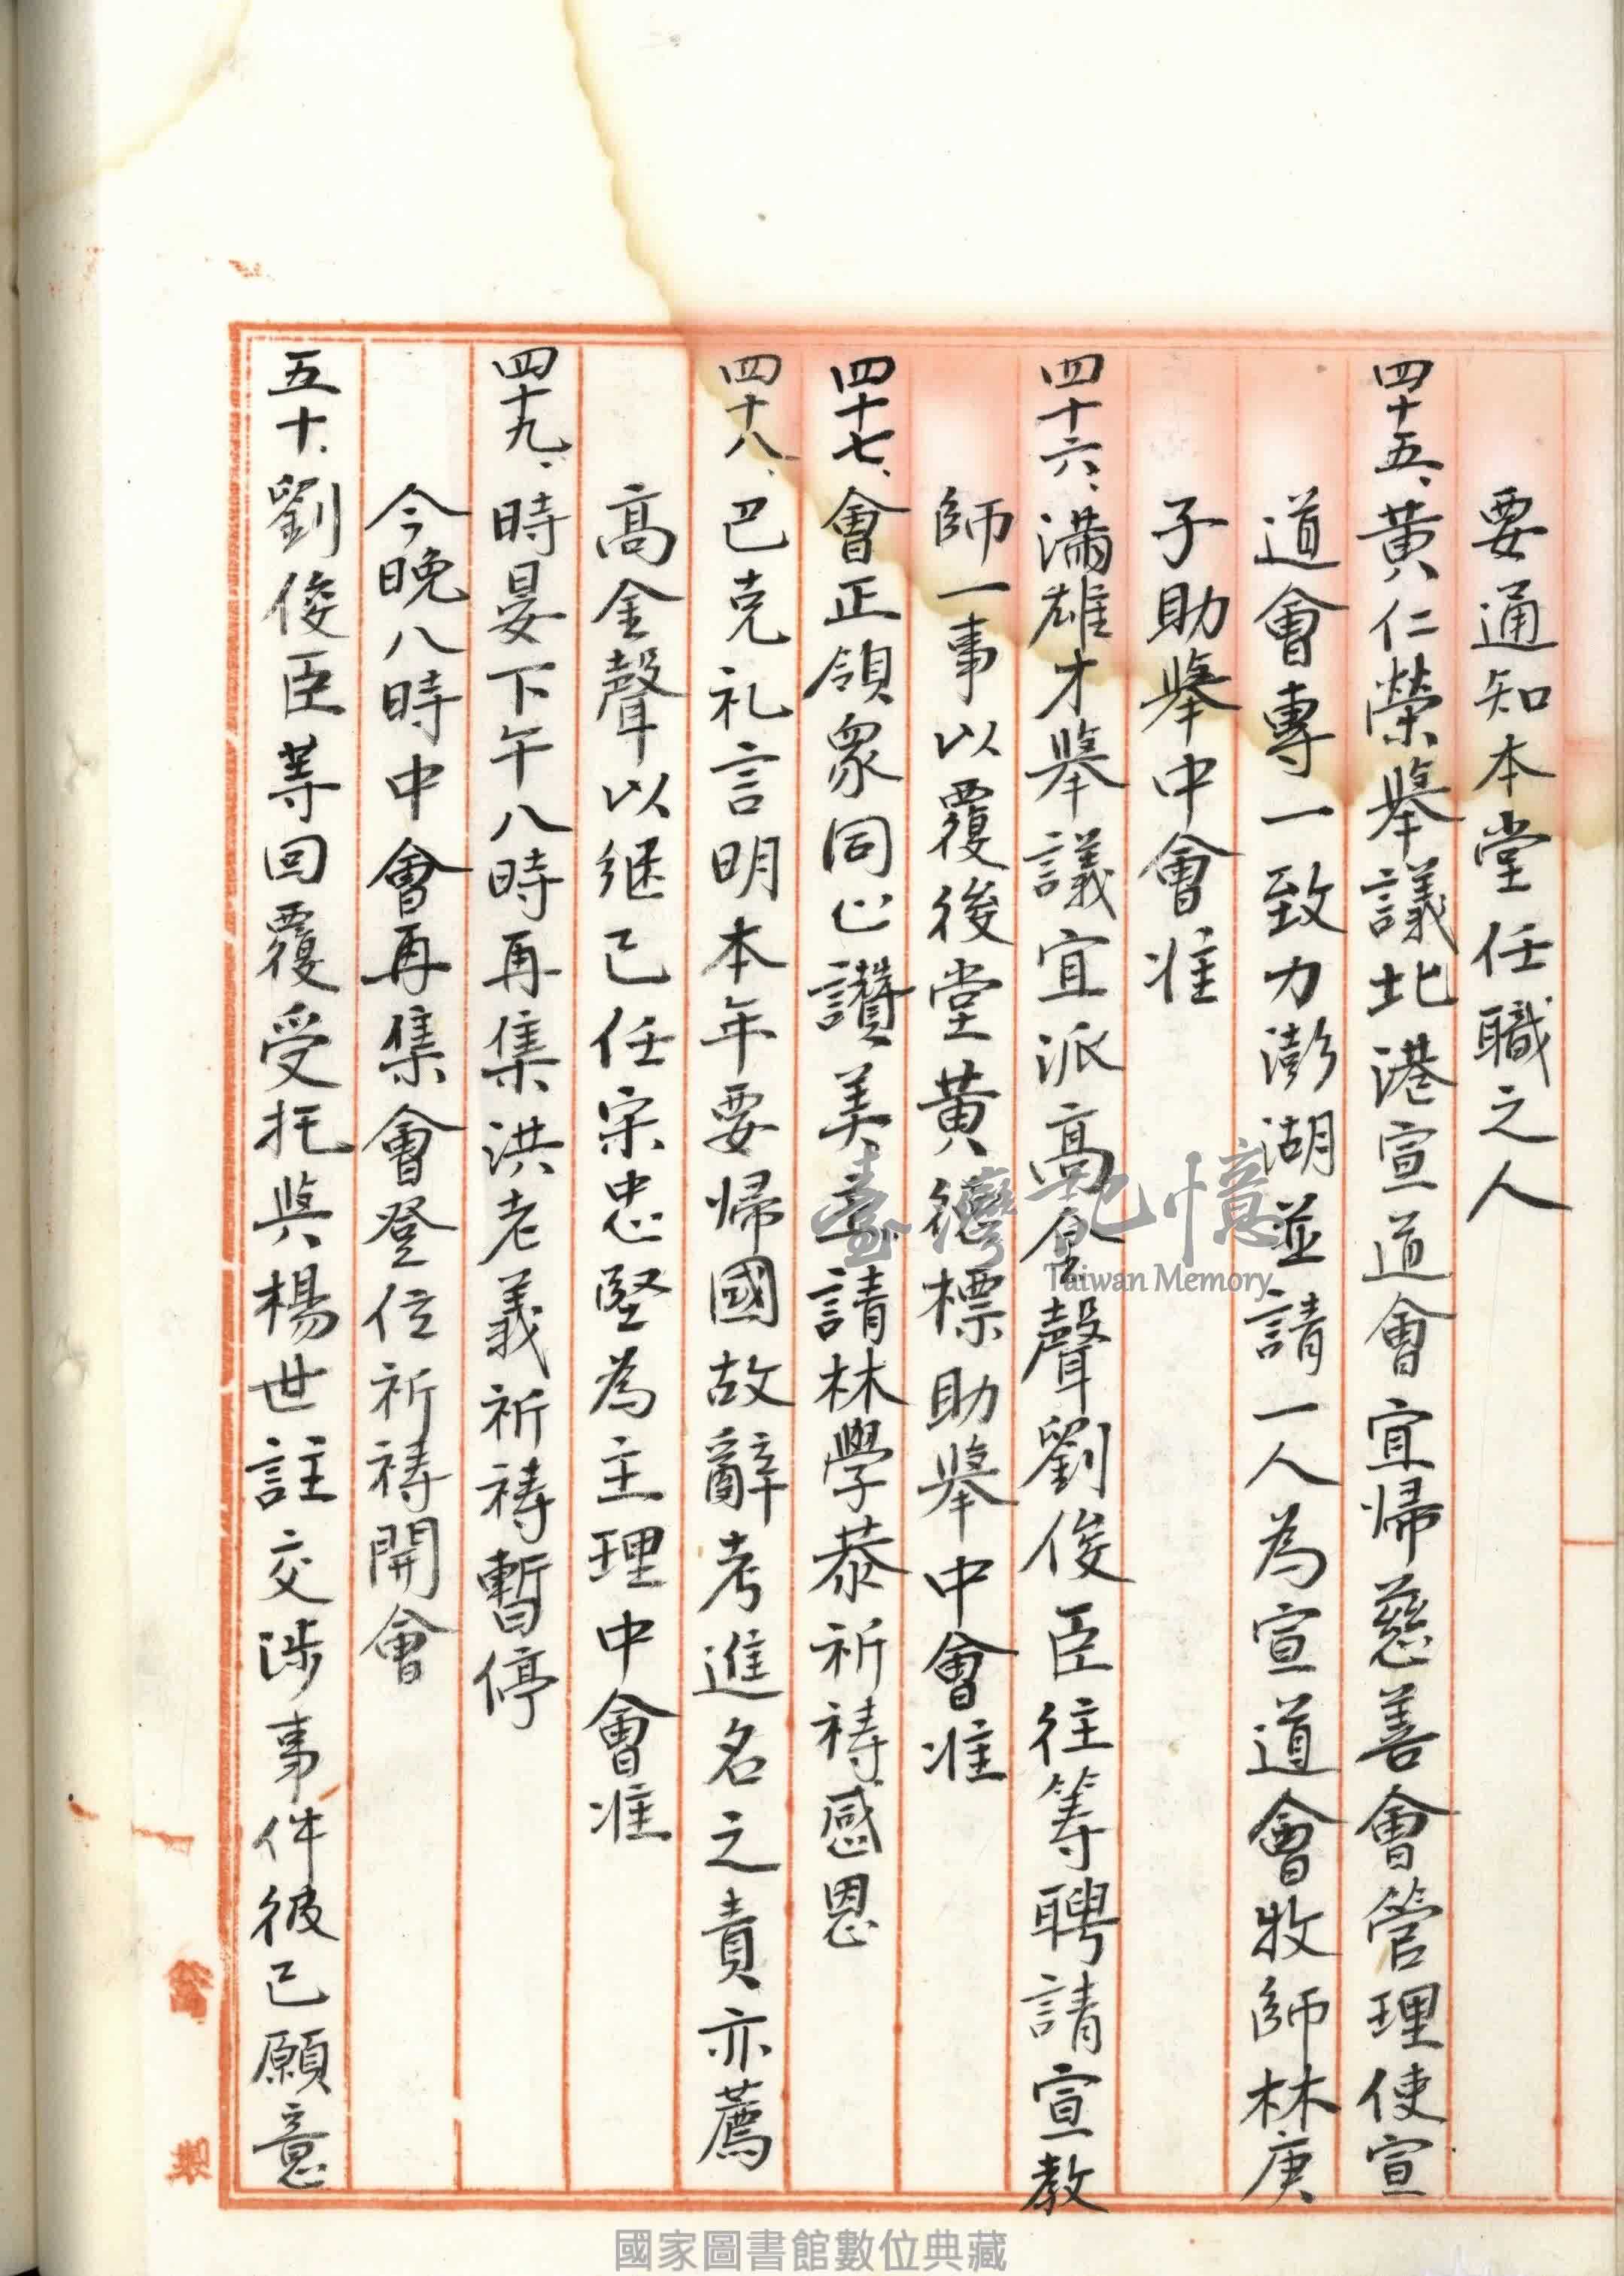 要通知本堂任職之人
四十五、黃仁榮舉議北港宣道會宜歸慈善會管理使宣
道會專一致力澎湖並請一人為宣道會牧師林庚
子助舉中會准
四十六、滿雄才舉議宜派高金聲劉俊臣往等聘請宣教
師一事以覆後堂黃德標助舉中會准
四十七、會正領眾同心讚美並請林學恭祈禱感恩
四十八、巴克礼言明本年要歸國故辭考進名之責亦薦
高金聲以继己任宋忠堅為主理中會准
四十九、時晏下午八時再集洪老義祈禱暫停
今晚八時中會再集會登位祈禱開會
五十、劉俊臣等回覆受托與楊世註交涉事件彼已願意
臺灣記憶
Taiwan Memory
會
製
國家圖書館數位典藏